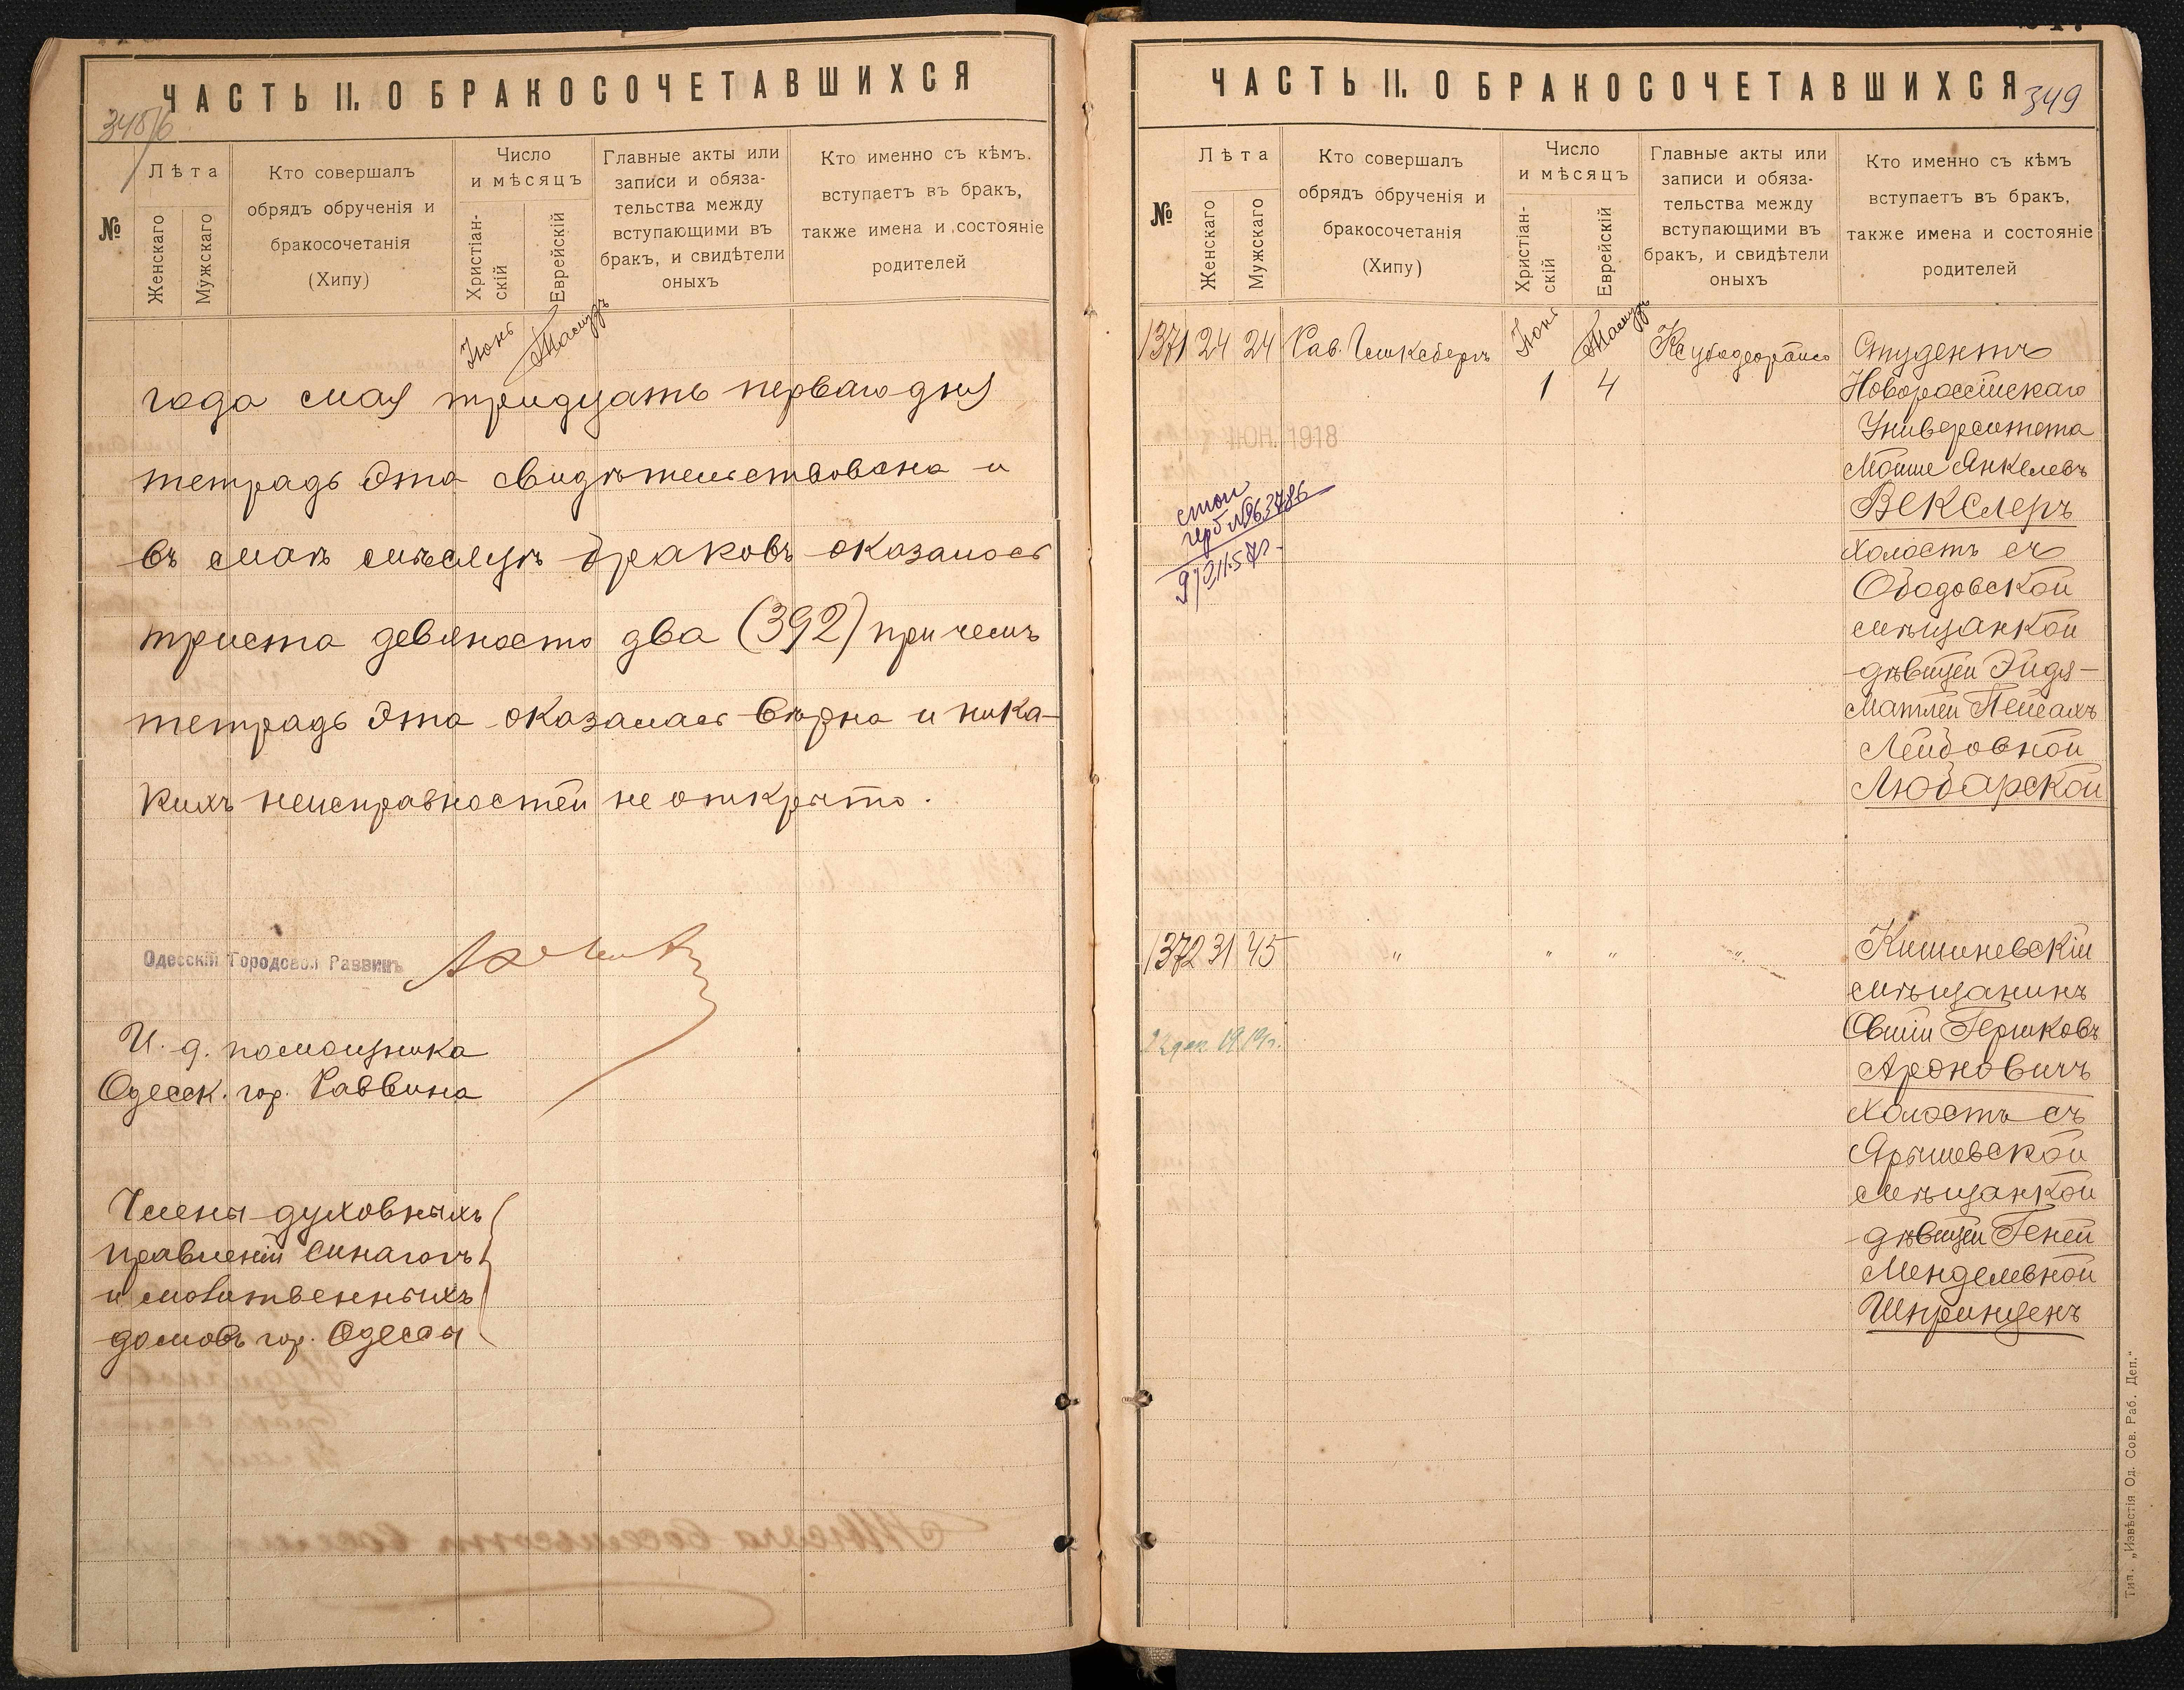 ЧАСТЬ II. О БРАКОСОЧЕТАВШИХСЯ
№
Лѣта
Женскаго
Мужскаго
Кто совершалъ
обрядъ обрученія и
бракосочетанія
(Хипу)
Число
и мѣсяцъ
Христіан-
скій
Еврейскій
Главные акты или
записи и обяза-
тельства между
вступающими въ
бракъ, и свидѣтели
оныхъ
Кто именно съ кѣмъ.
вступаетъ въ бракъ,
также имена и состояніе
родителей
Іюнь Тамузъ
года мая тридцать перваго дня
тетрадь эта свидѣтельствована и
въ маѣ мѣсяцѣ браковъ оказалось
триста девяносто два (392) при чемъ
тетрадь эта оказалась вѣрна и ника-
кихъ неисправностей не открыто.
Одесскій Городской Раввинъ
И. д. помощника
Одесск. гор. Раввина
Члены духовныхъ
правленій синагогъ
и молитвенныхъ
домовъ гор. Одессы
ЧАСТЬ II. О БРАКОСОЧЕТАВШИХСЯ
349
№
Лѣта
Женскаго
Мужскаго
Кто совершалъ
обрядъ обрученія и
бракосочетанія
(Хипу)
Число
и мѣсяцъ
Христіан-
скій
Еврейскій
Главные акты или
записи и обяза-
тельства между
вступающими въ
бракъ, и свидѣтели
оныхъ
Кто именно съ кѣмъ
вступаетъ въ бракъ,
также имена и состояніе
родителей
1371 24 24 Рав. Іюнь Тамузъ
1 4
Студентъ
Новороссійскаго
Университета
Мойше Янкелевъ
Векслеръ
холостъ съ
Ободовской
мѣщанкой
дѣвицей Эйдя-
Матлей Пейсахъ
Лейбовной
Любарской
ІЮН. 1918
1372 31 45 " " " "
Кишиневскій
мѣщанинъ
Овшій Гершковъ
Ароновичъ
холостъ съ
Ярышевской
мѣщанкой
дѣвицей Геней
Менделевной
Шпринценъ
2 дек 1919г.
Тип. „Извѣстія Од. Сов. Раб. Деп."